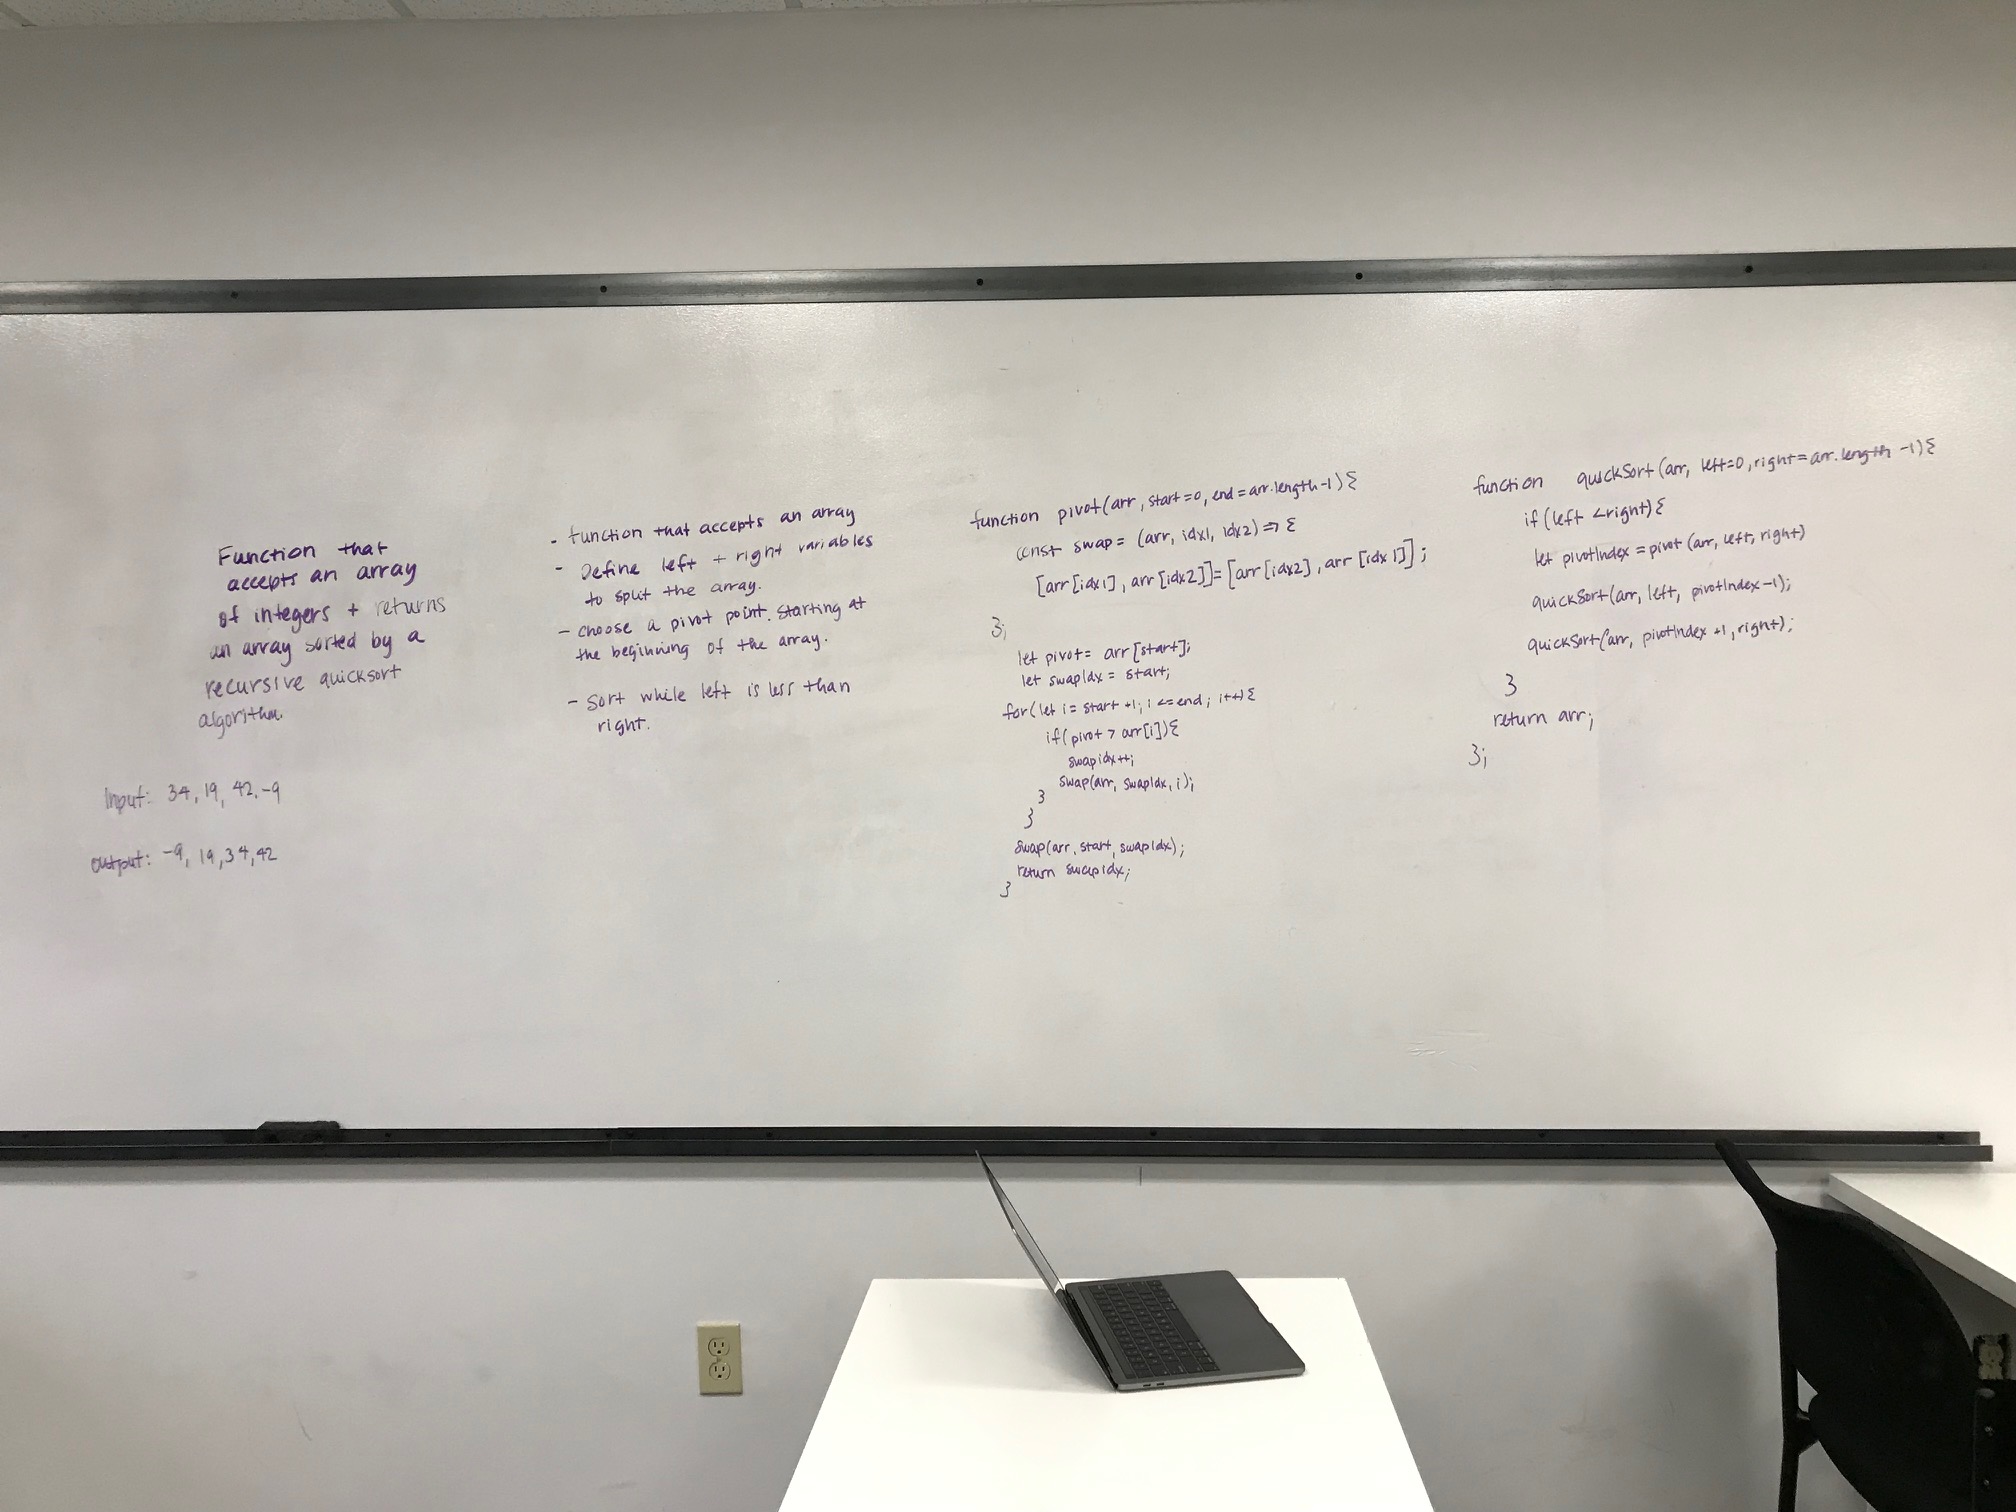 Function that
accepts an array
of integers + returns
an array sorted by a
recursive quicksort
algorithm.
Input: 34, 19, 42, -9
output: -9, 19, 34, 42
- function that accepts an array
- Define left + right variables
to split the array.
- choose a pivot point. Starting at
the beginning of the array.
- Sort while left is less than
right.
function pivot(arr, start=0, end=arr.length-1){
const swap = (arr, idx1, idx2) => {
[arr[idx1], arr[idx2]]=[arr[idx2], arr[idx1]];
};
let pivot = arr[start];
let swapIdx = start;
for(let i = start +1; i <= end; i++){
if(pivot > arr[i]){
swapidx++;
swap(arr, swapIdx, i);
}
}
swap(arr, start, swapIdx);
return swapidx;
}
function quickSort(arr, left=0, right=arr.length -1){
if(left <right){
let pivotIndex = pivot(arr, left, right)
quickSort(arr, left, pivotIndex-1);
quickSort(arr, pivotIndex +1, right);
}
return arr;
};